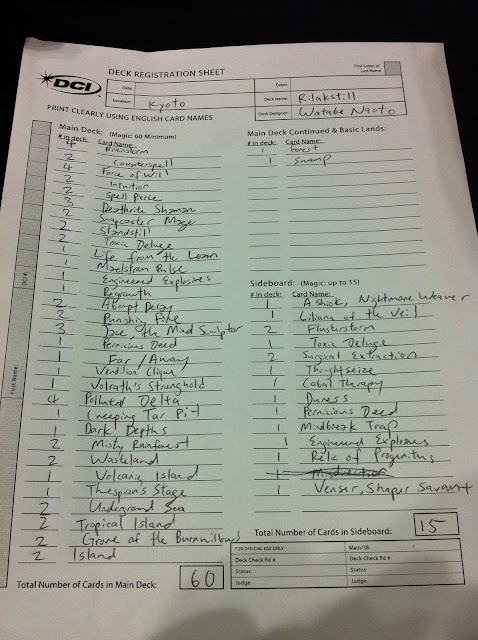 DCI
DECK REGISTRATION SHEET
First Letter of
Last Name
Date:
Event:
Location: Kyoto
Deck Name: Rilakstill
Deck Designer: Watabe Naoto
PRINT CLEARLY USING ENGLISH CARD NAMES
DCI#:
First Name:
Main Deck: (Magic: 60 Minimum)
# in deck: Card Name:
4 Brainstorm
2 Counterspell
4 Force of Will
2 Intuition
2 Spell Perce
3 Deathrite Shaman
2 Snapcaster Mage
2 Standstill
2 Toxic Deluge
1 Life from the Loam
1 Maelstrom Pulse
1 Engineered Explosives
1 Regrowth
2 Abrupt Decay
2 Punishing Fire
3 Jace, the Mind Sculptor
1 Pernicious Deed
1 Far / Away
1 Vendilion Clique
1 Volrath's Stronghold
4 Polluted Delta
1 Creeping Tar Pit
1 Dark Depths
2 Misty Rainforest
2 Wasteland
1 Volcanic Island
1 Thespian's Stage
2 Underground Sea
2 Tropical Island
2 Grove of the Burnwillows
2 Island
Total Number of Cards in Main Deck: 60
Main Deck Continued & Basic Lands:
# in deck: Card Name:
1 Forest
1 Swamp
Sideboard: (Magic: up to 15)
# in deck: Card Name:
1 Ashiok, Nightmare Weaver
1 Liliana of the Veil
2 Flusterstorm
1 Toxic Deluge
2 Surgical Extraction
1 Thoughtseize
1 Cabal Therapy
1 Duress
1 Pernicious Deed
1 Mindbreak Trap
1 Engineered Explosives
1 Relic of Progenitus
1 Misdirection
1 Venser, Shaper Savant
Total Number of Cards in Sideboard: 15
FOR OFFICIAL USE ONLY
Main/SB
Deck Check Rd #:
Deck Check Rd #:
Status:
Status:
Judge:
Judge: